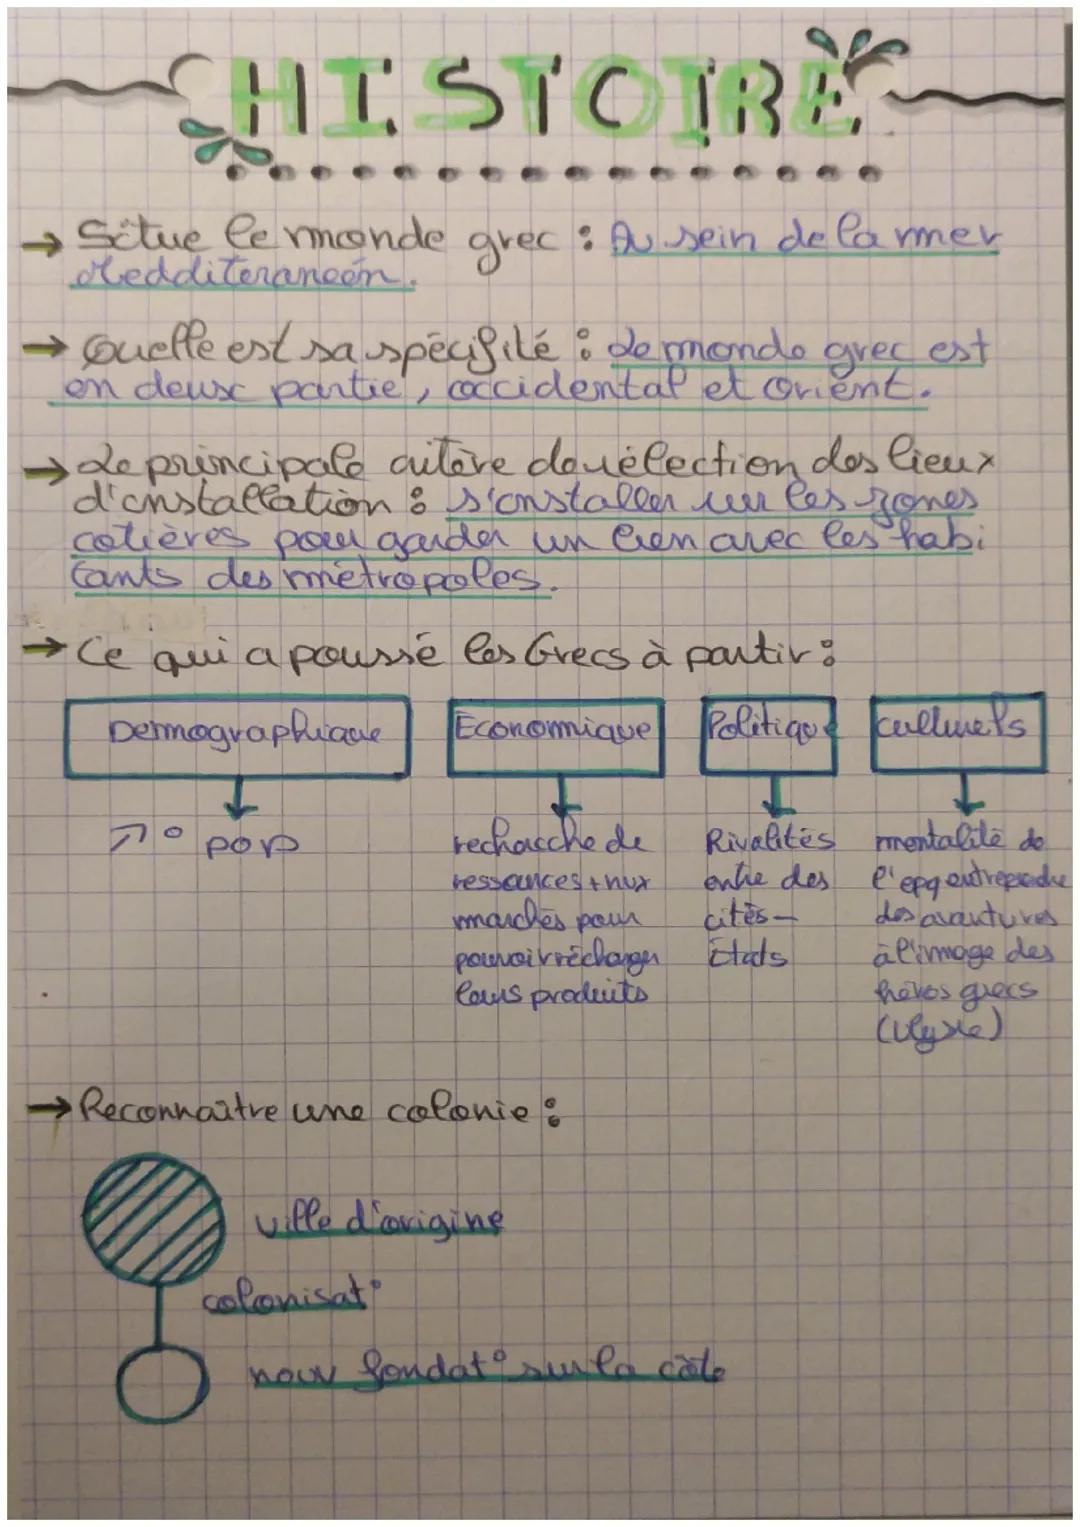 HISTOIRE
→ Situe le monde grec : Au sein de la mer
Medditeranéen.
→ Quelle est sa spécifité : Le monde grec est
en deux partie, occidental et orient.
→ Le principale critère de sélection des lieux
d'installation : s'installer sur les zones
cotières pour garder un lien avec les habi
tants des métropoles.
→ Ce qui a poussé les Grecs à partir :
Demographique Economique Politique culturels
↗° pop
recharche de
ressources + nux
marchés pour
pouvoir réchanger
leurs produits
Rivalités
entre des
cités-
Etats
mentalité de
l'epq entreprendre
des avantures
à l'image des
héros grecs
(Ulysse)
→ Reconnaître une colonie :
ville d'origine
colonisat°
nouv fondat° sur la côte